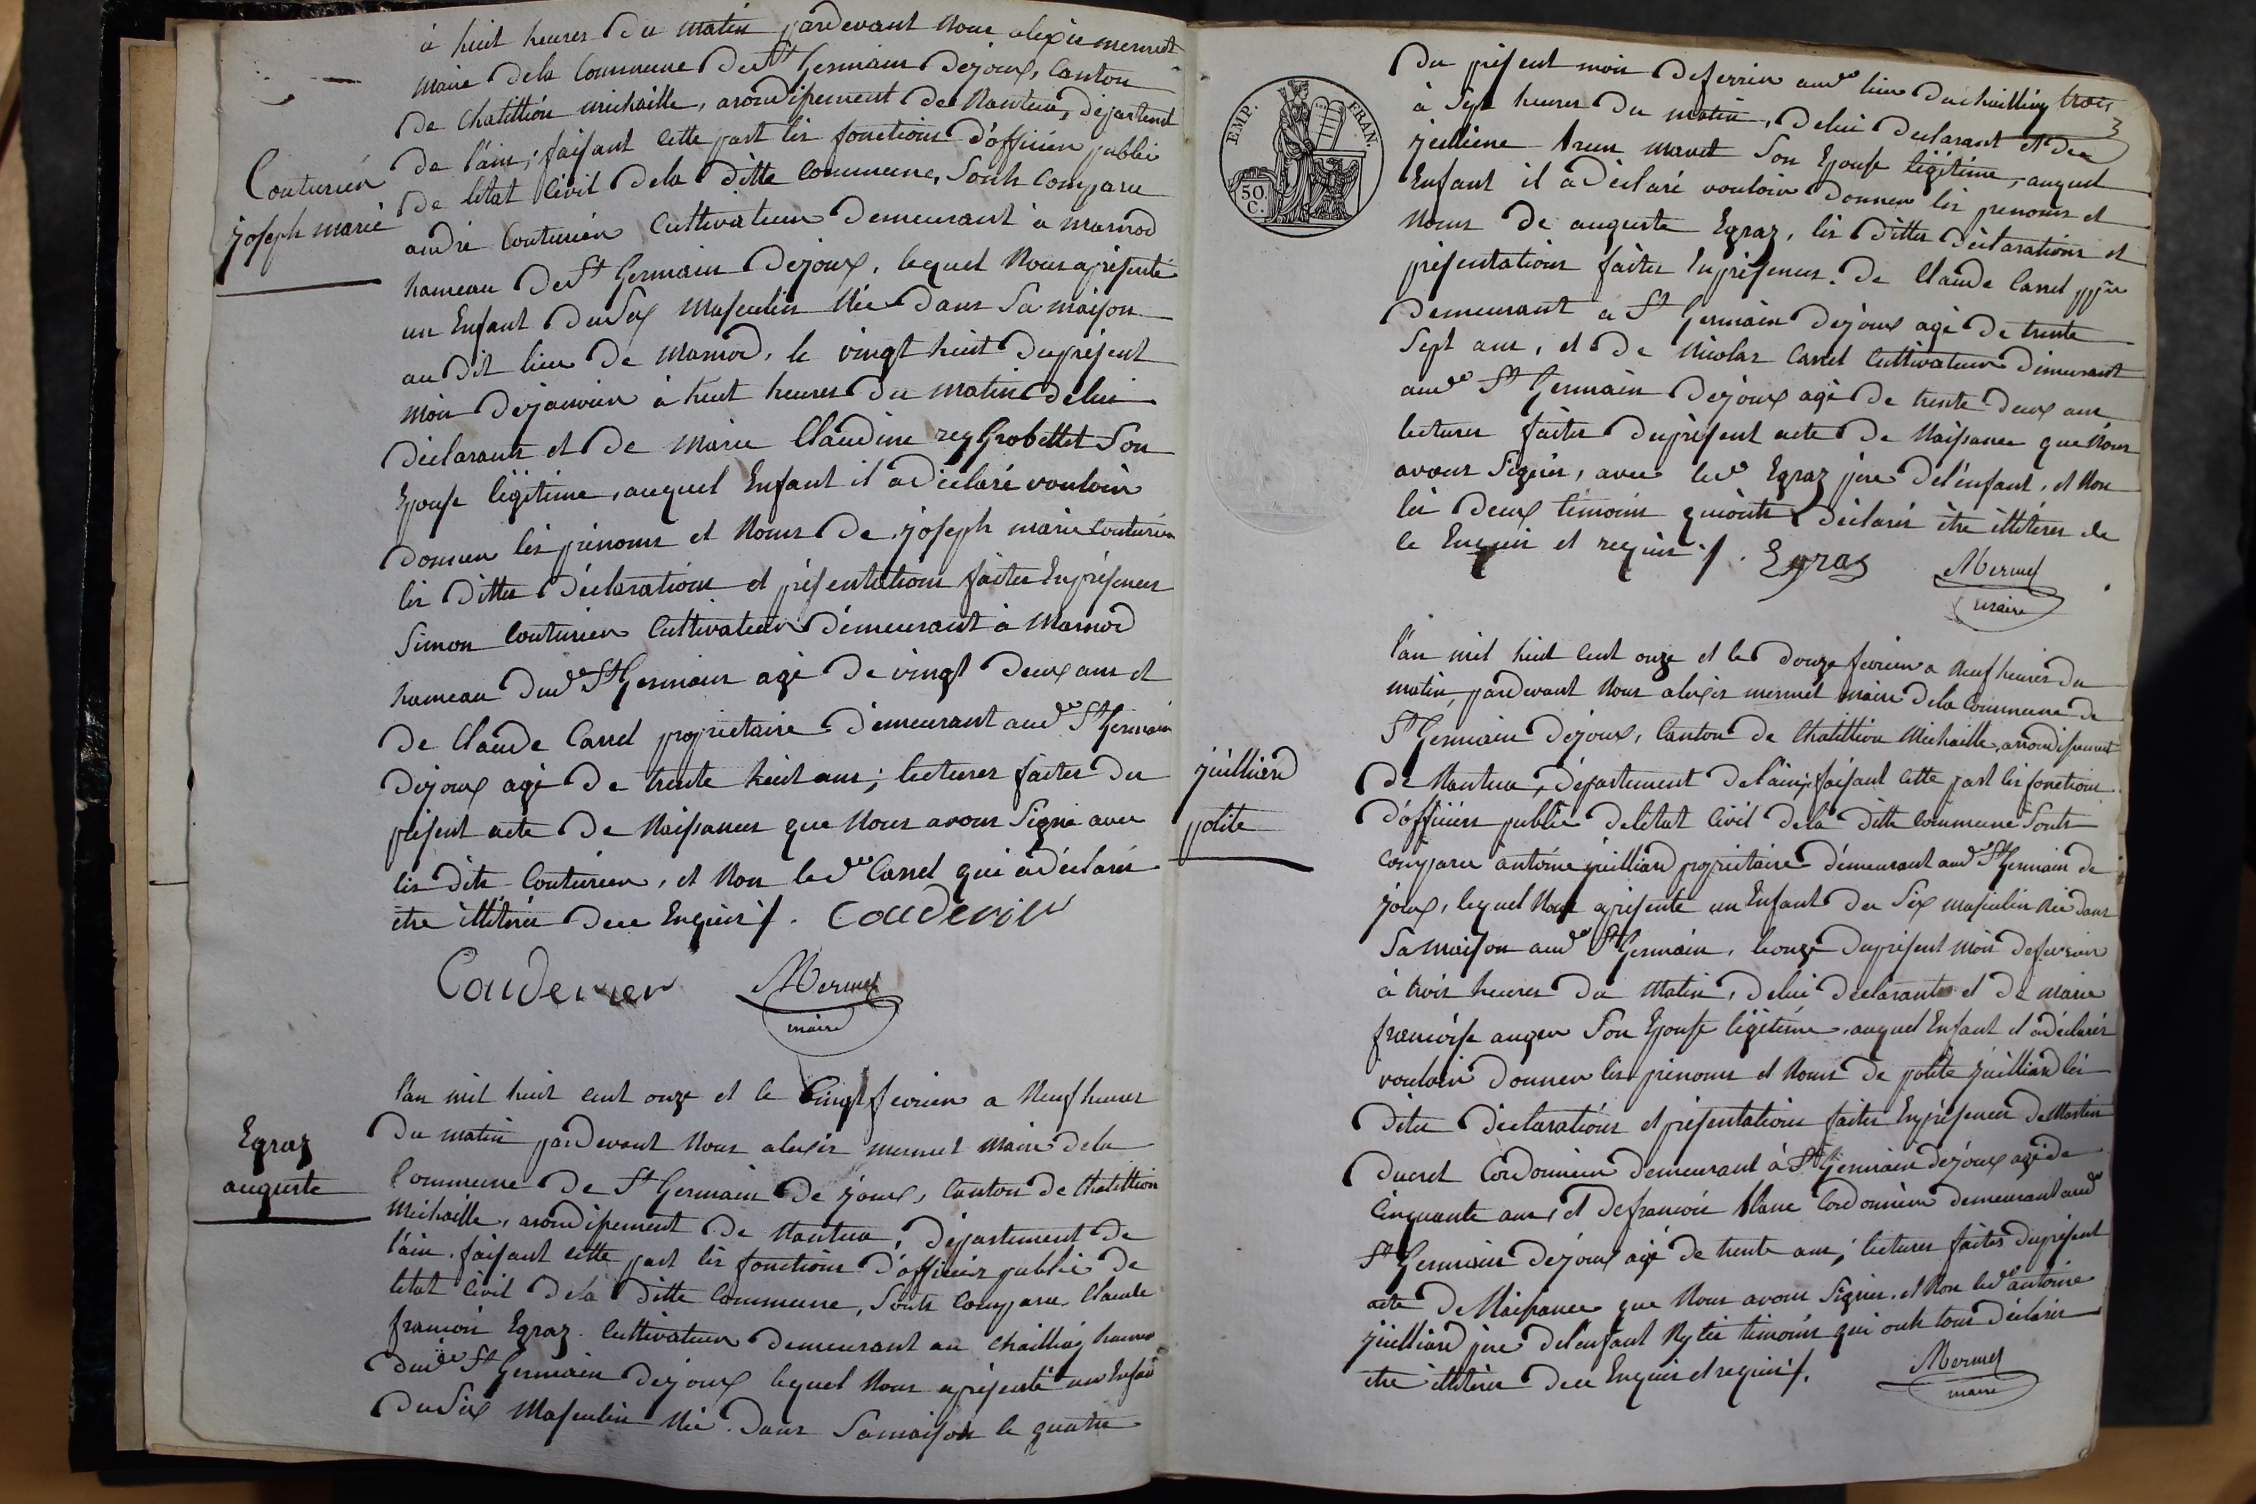 à huit heures du matin pardevant nous alexis mermet
maire dela Commune de St Germain dejoux, Canton
de Chatillion michaille, arondissement de Nantua, département
de l'ain, faisant cette part les fonctions d'officier public
de l'état Civil dela ditte Commune, Sonts Comparu
andré Couturier Cultivateur demeurant à marnod
hameau de St Germain dejoux, lequel Nous a présenté
un Enfant du Sex masculin Née dans Sa maison
au dit lieu de marnod, le vingt huit du présent
mois dejanvier à huit heures du matin delui
déclarant et de marie Claudine rey Grobellet Son
Epouse légitime, auquel Enfant il a déclaré vouloir
donner les prénoms et Noms de joseph marie Couturier
les dittes déclarations et présentations faites En présences
Simon Couturier Cultivateur demeurant à Marnod
hameau dud St Germain agé de vingt deux ans et
de Claude Carrel propriétaire demeurant aud St Germain
dejoux agé de trente huit ans; lectures faites du
présent acte de Naissances que Nous avons Signé avec
les dits Couturier, et Non led Carrel qui a déclaré
etre illétéré de ce Enquis /. Couderier
Couderier Mermet
maire
Couturier
joseph marie
l'an mil huit cent onze et le Cinq fevrier a Neuf heures
du matin pardevant Nous alexis mermet maire dela
Commune de St Germain de joux, Canton de Chatillion
Michaille, arondissement de Nantua, département de
l'ain, faisant cette part les fonctions d'officier public de
l'état Civil dela ditte Commune, Sonts Comparu Claude
francois Egraz Cultivateur demeurant au Chaillay hameau
dud St Germain dejoux lequel Nous a présenté un Enfant
du Sex Masculin Née dans Sa maison le quatre
Egraz
auguste
trois
3
EMP. FRAN.
50 C.
du présent mois defevrier aud lieu du Chailliey
à Sept heures du matin, delui déclarant et de
jullienne Brun Son Epouse légitime, auquel
Enfant il a déclaré vouloir donner les prenoms et
Noms de auguste Egraz, les dittes déclarations et
présentations faites En présences de Claude Carrel pp.re
demeurant a St Germain dejoux agé de trente
Sept ans, et de Nicolas Carrel Cultivateur demeurant
aud St Germain dejoux agé de trente deux ans
lectures faites du présent acte de Naissance que Nous
avons Signés, avec led Egraz père del'énfant, et Non
les deux témoins qui onts déclarés être illétérés de
ce Enquis et requis /. Egraz Mermet
maire
l'an mil huit cent onze et le douze fevrier a Neuf heures du
matin, pardevant Nous alexis mermet maire dela Commune de
St Germain dejoux, Canton de Chatillion Michaille, arrondissement
de Nantua, département del'ain, faisant cette part les fonctions
d'officier public del'état Civil dela ditte Commune Sonts
Comparu antoine juilliard propriétaire demeurant aud St Germain de
joux, lequel Nous a présenté un Enfant du Sex masculin Née dans
Sa maison aud St Germain, le onze du présent mois defevrier
à trois heures du Matin, delui déclarant et de marie
francoise auger Son Epouse légitime, auquel Enfant il a déclarés
vouloir donner les prénoms et Noms de polite juilliard les
dites déclarations et présentations faites En présences de Martin
ducret Cordonnier demeurant à St Germain dejoux agé de
Cinquante ans, et de francois blanc Cordonnier demeurant aud
St Germain dejoux agé de trente ans; lectures faites du présent
acte de Naissance que Nous avons Signés, et Non led antoine
juilliard père del'enfant Ny les temoins qui onts tous déclarés
etre illétérés de ce Enquis et requis /. Mermet
maire
juilliard
polite